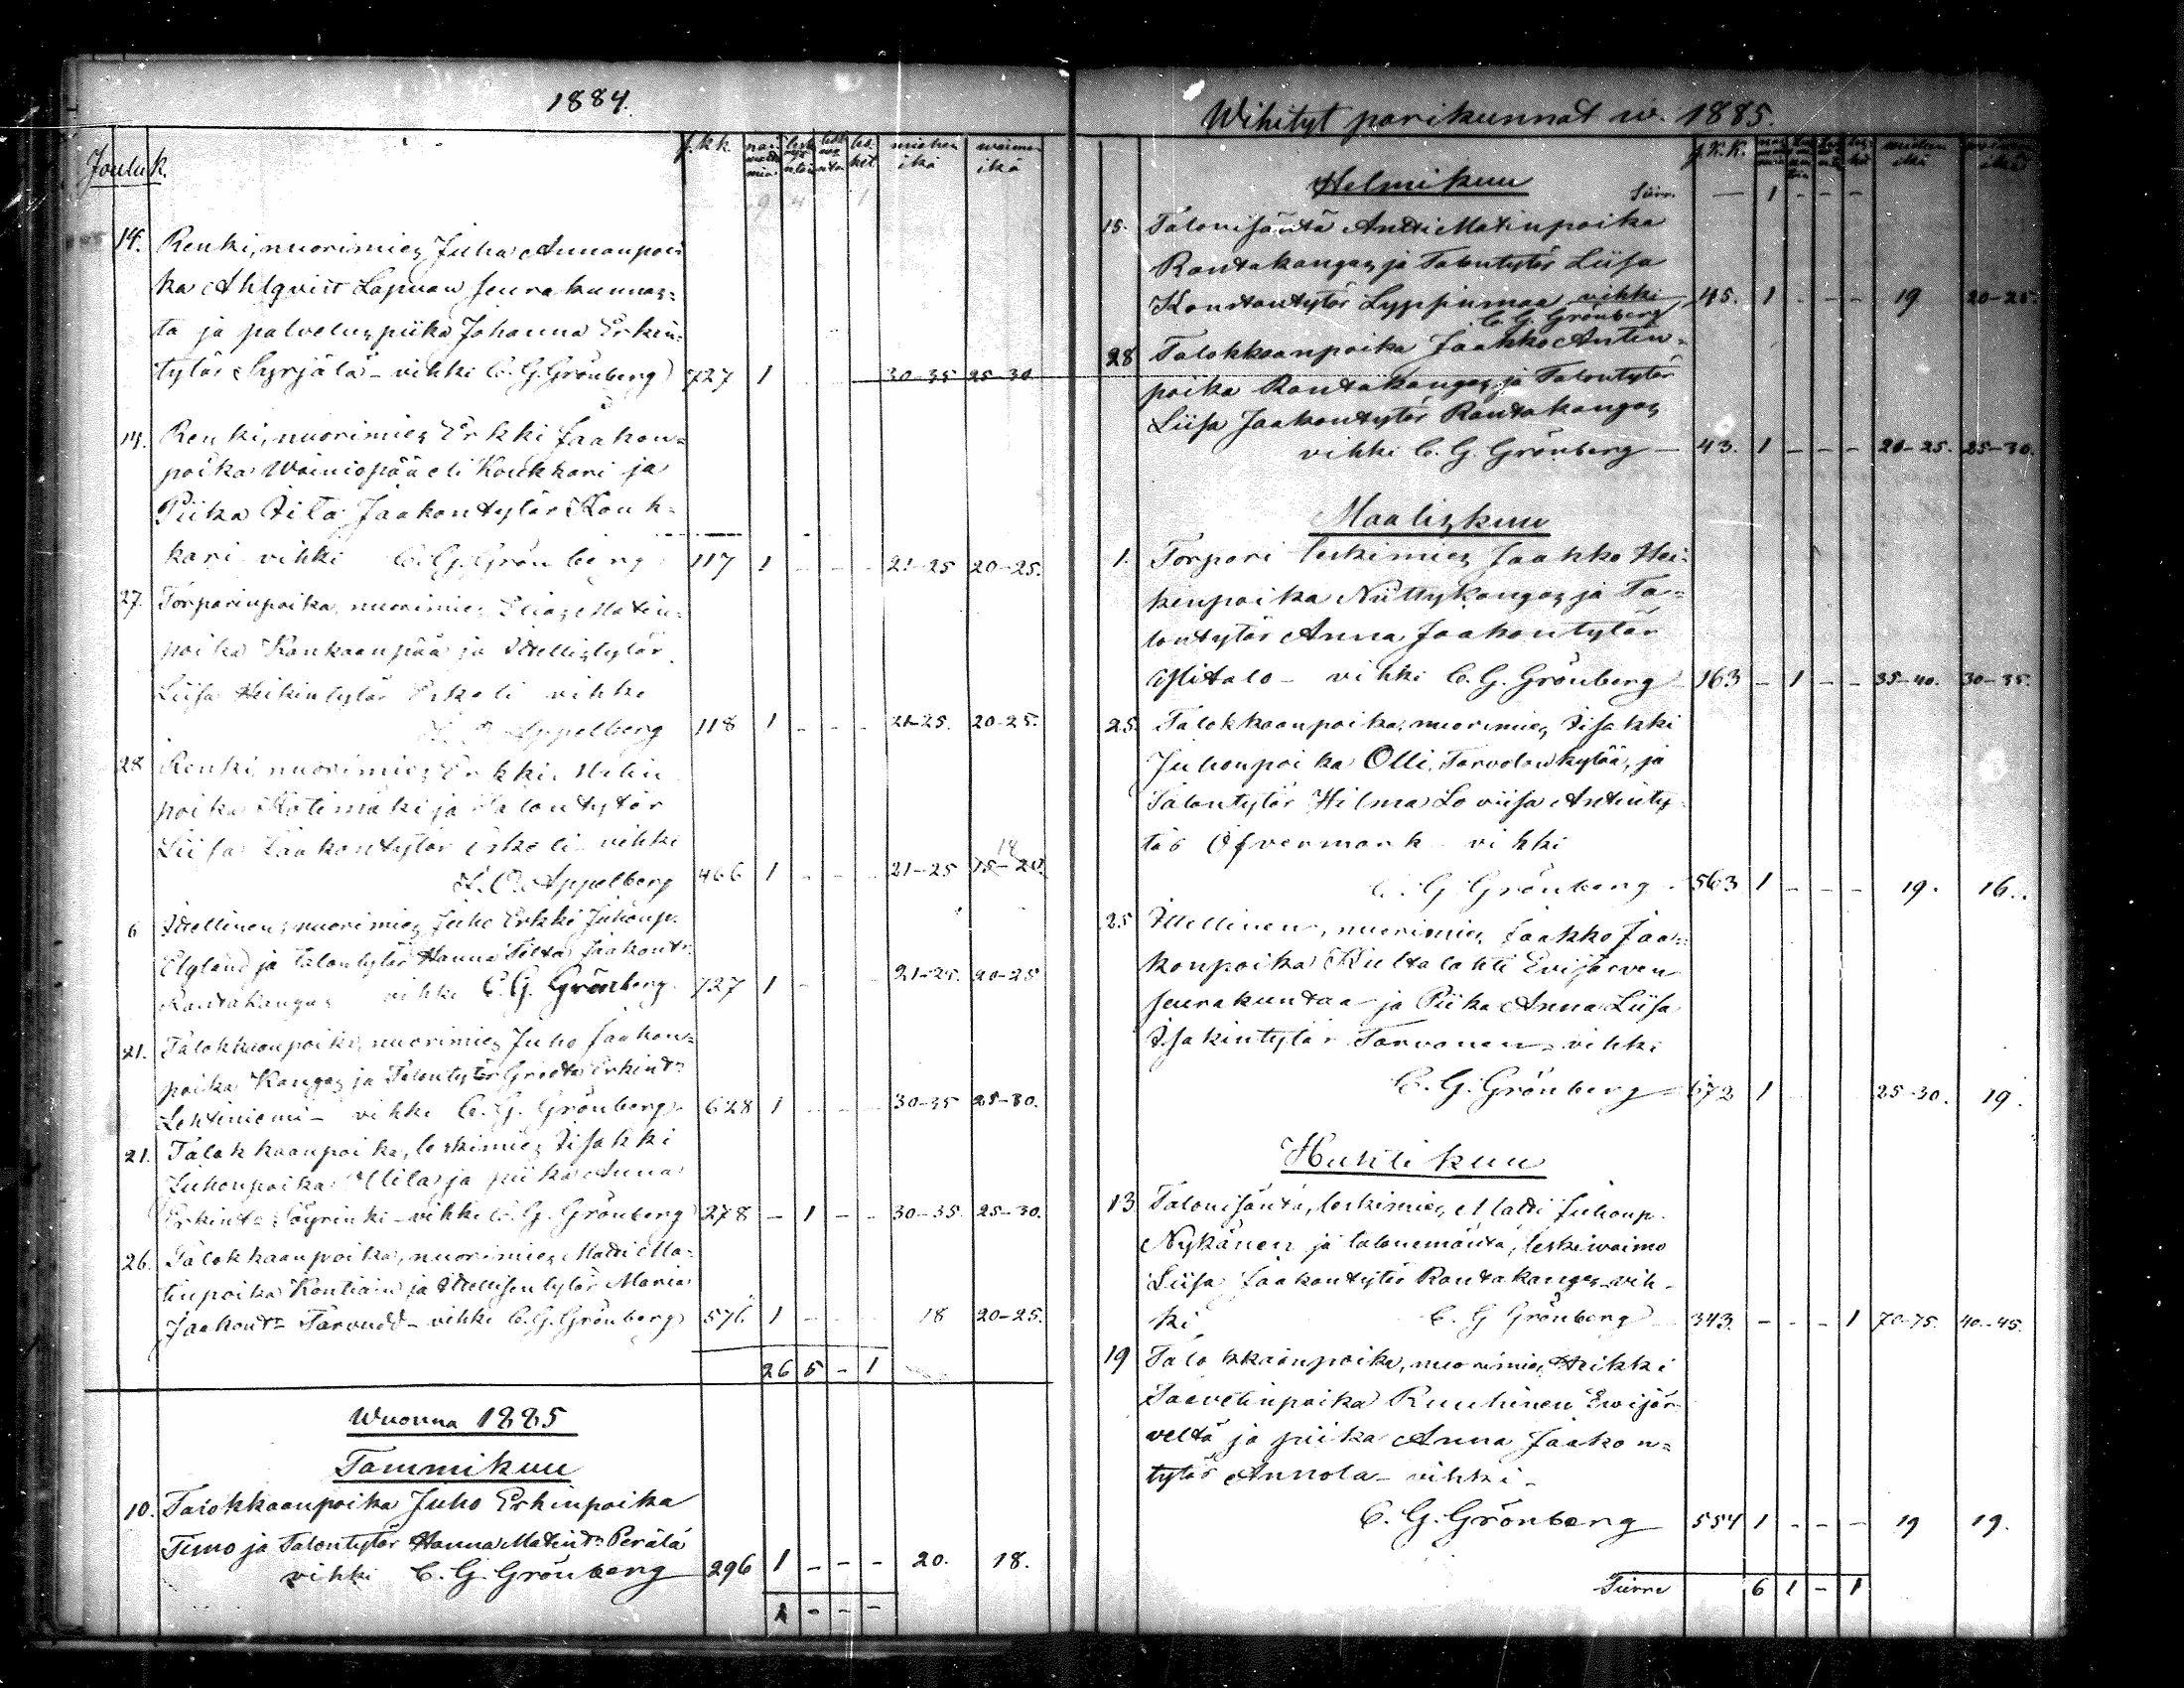 1884.
Jouluk.
s. kk. miehen ikä waimon ikä
14. Renki, nuorimies Juha Annanpoi-
ka Ahlqvist Lapuan seurakunnas-
ta ja palveluspiika Johanna Erkin-
tytär Syrjälä - vihki C. G. Grönberg 727 1 30-35 25-30
14. Renki, nuorimies Erkki Jaakon-
poika Wainiopää eli Koukkari ja
Piika Fita Jaakontytär Kouk-
kari vihki C. G. Grönberg 117 1 - - - 21-25 20-25.
27. Torparinpoika, nuorimies Elias Matin-
poika Kankaanpää ja Itellistytär
Liisa Heikintytär Erkeli vihki
Appelberg 118 1 - - - 21-25. 20-25.
28 Renki nuorimies Erkki
poika Kotimäki ja Talontytär
Liisa Jaakontytär Erkeli vihki
Appelberg 466 1 - - - 21-25 15-20. 18
6 Itellinen, nuorimies Juho Erkki Juhonp.
Elgland ja talontytär Hanna Jaakontr
Rantakangas vihki C. G. Grönberg 727 1 - - 21-25. 20-25
21. Talokkaanpoika, nuorimies Juho Jaakon-
poika Kangas ja Talontytär Greeta Erkintr
Lehtiniemi - vihki C. G. Grönberg 628 1 - - - 30-35 25-30.
21. Talokkaanpoika, leskimies Iisakki
Juhonpoika Ulila ja piika Anna
Erkintr Söyrinki - vihki C. G. Grönberg 278 - 1 - - 30-35. 25-30.
26. Talokkaanpoika, nuorimies Matti Ma-
tinpoika Kontiain ja Itellisentytär Maria
Jaakontr Tarvudd - vihki C. G. Grönberg 576 1 - - 18 20-25.
26 5 - 1
Wuonna 1885
Tammikuu
10. Talokkaanpoika Juho Erkinpoika
Timo ja Talontytär Hanna Matintr Perälä
vihki C. G. Grönberg 296 1 - - - 20. 18.
1 - - -
Wihityt parikunnat w. 1885.
s. k. k. miehen ikä waimon ikä
Helmikuu
Siirr. - 1 - - -
15. Talonisäntä Antti Matinpoika
Rantakangas ja Talontytär Liisa
Konstantytär Lyppinmaa vihki 45. 1 - - - 19 20-25.
C. G. Grönberg
28 Talokkaanpoika Jaakko Antin-
poika Rantakangas ja Talontytär
Liisa Jaakontytär Rantakangas
vihki C. G. Grönberg - 43. 1 - - - 20-25. 25-30.
Maaliskuu
1. Torpari leskimies Jaakko Hei-
kinpoika Niittykangas ja Ta-
lontytär Anna Jaakontytär
Ylitalo - vihki C. G. Grönberg - 163 - 1 - - 35-40. 30-35.
25. Talokkaanpoika, nuorimies Iisakki
Juhonpoika Olli, Tarvolan kylää, ja
Talontytär Hilma Loviisa Antinty-
tär Öfvermark vihki
C. G. Grönberg. 563 1 - - - 19. 16.
25 Itellinen, nuorimies Jaakko Jaa-
konpoika Kultalahti Evijärven
seurakuntaa ja Piika Anna Liisa
Isakintytär Tarvonen - vihki
C. G. Grönberg 672 1 25-30. 19.
Huhtikuu
13 Talonisäntä, leskimies Matti Juhonp.
Nykänen ja talonemäntä, leskiwaimo
Liisa Jaakontytär Rantakangas - vih-
ki C. G Grönberg 343. - - - 1 70-75. 40-45.
19 Talokkaanpoika, nuorimies Heikki
Taavetinpoika Ruuhinen Ewijär-
veltä ja piika Anna Jaakon-
tytär Annola - vihki -
C. G. Grönberg 554 1 - - - 19 19.
Siirre 6 1 - 1